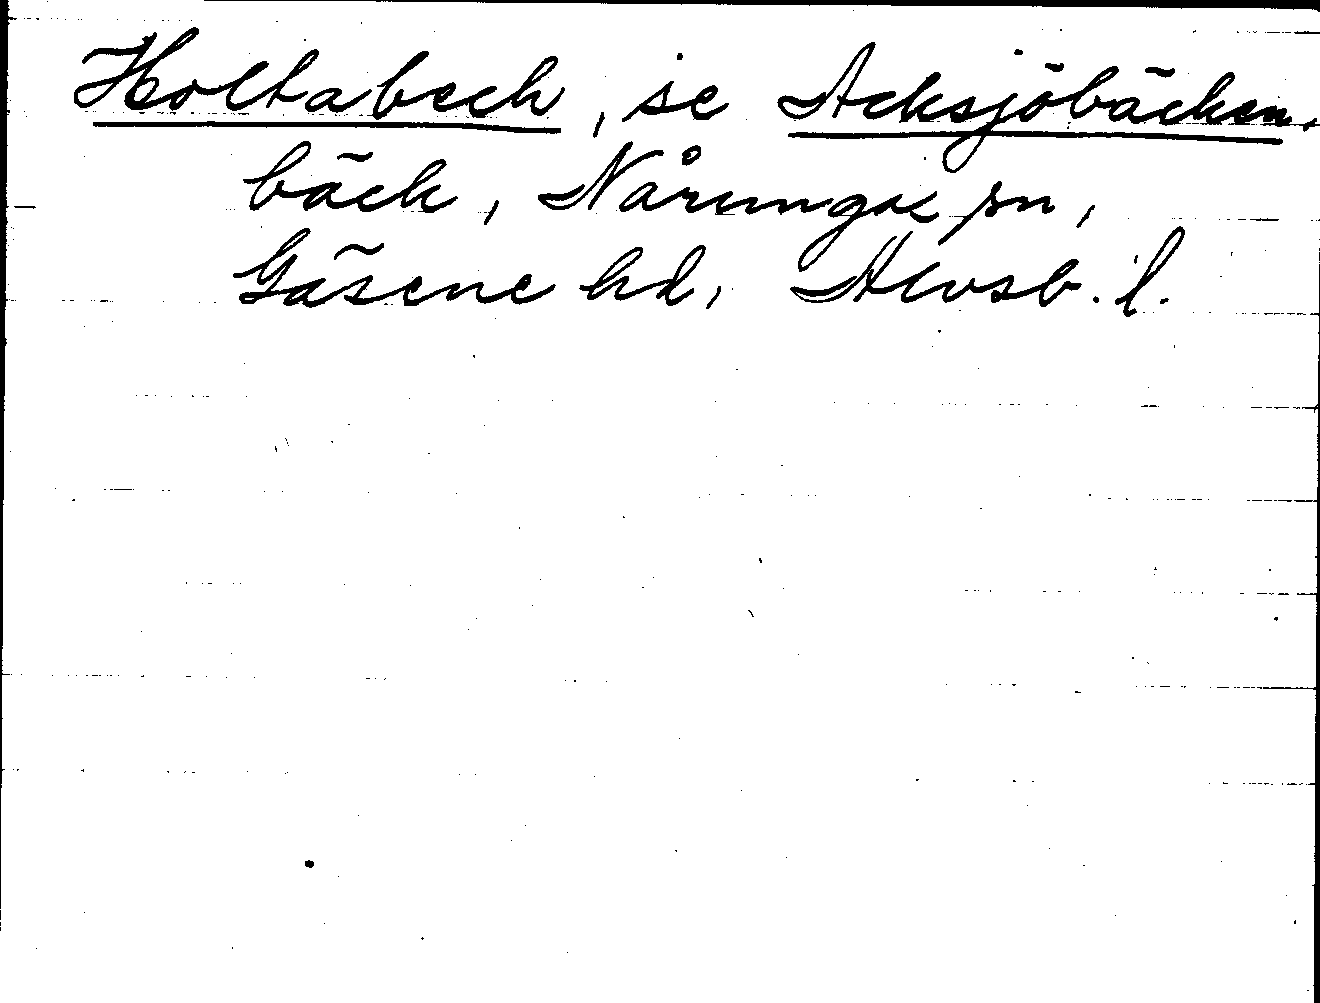 Holtabech, se Acksjöbäcken.
bäck, Nårunga sn,
Gäsene hd, Älvsb. l.